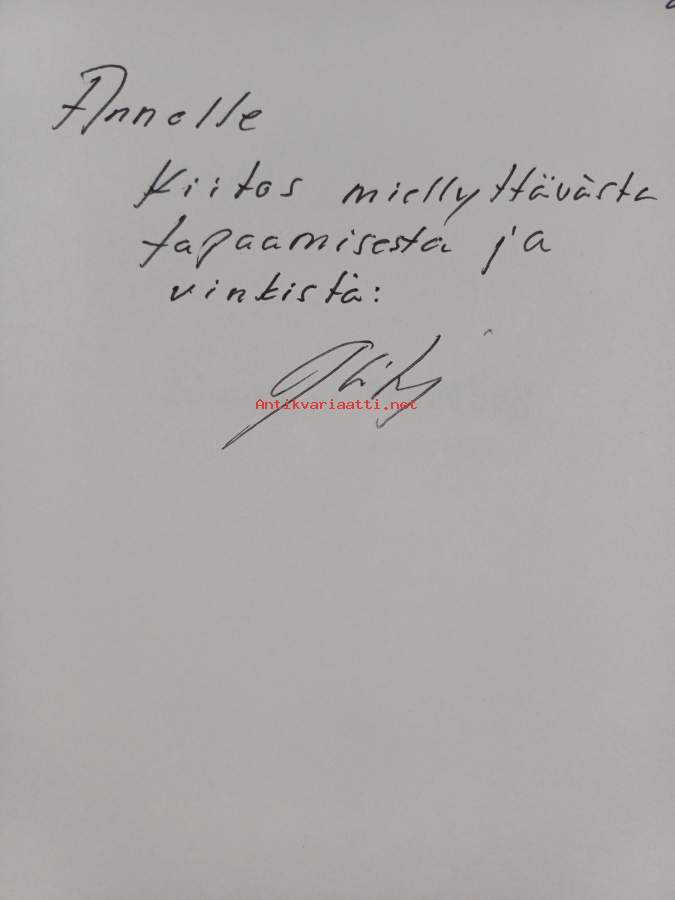 Annelle
Kiitos miellyttävästä
tapaamisesta ja
vinkistä:
Antikvariaatti.net